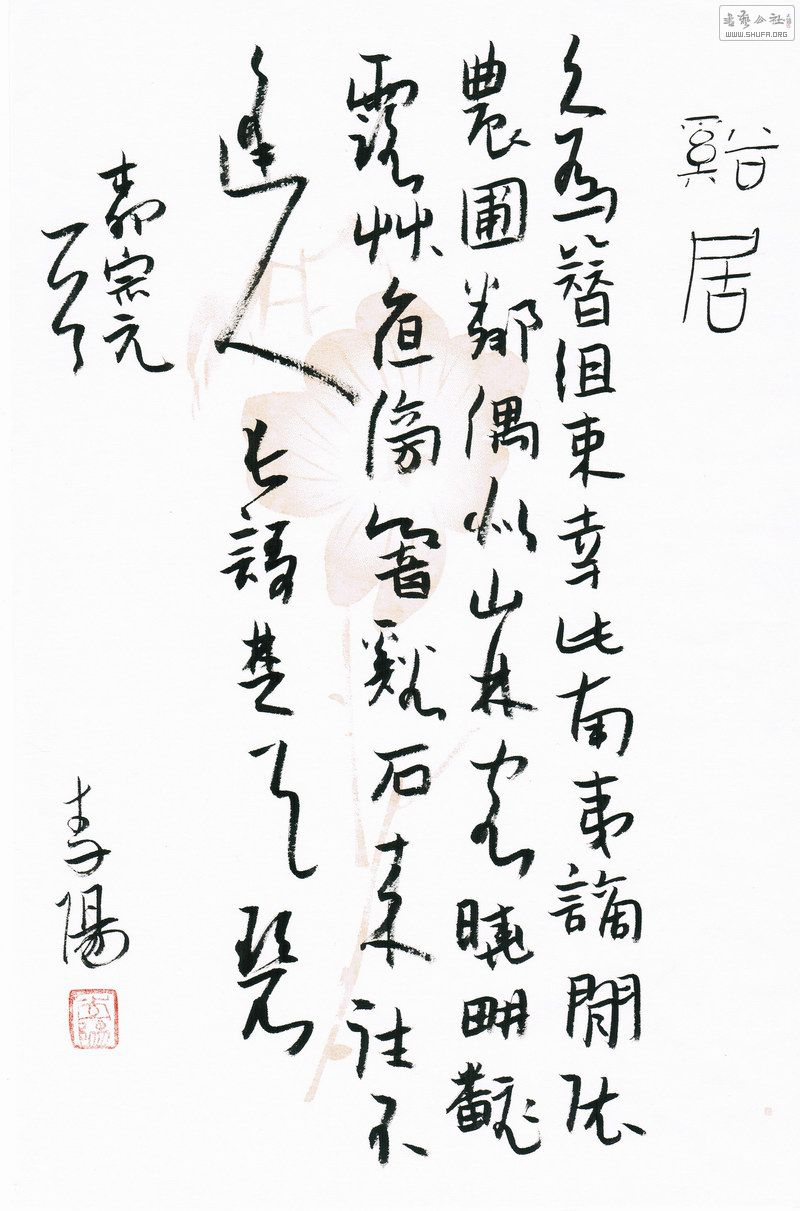 書藝公社
WWW.SHUFA.ORG
谿居
久為簪組束幸此南夷謫閒依
農圃鄰偶似山林客曉畊飜
露艸夜傍響谿石來往不
逢人長謌楚天碧
柳宗元
李陽